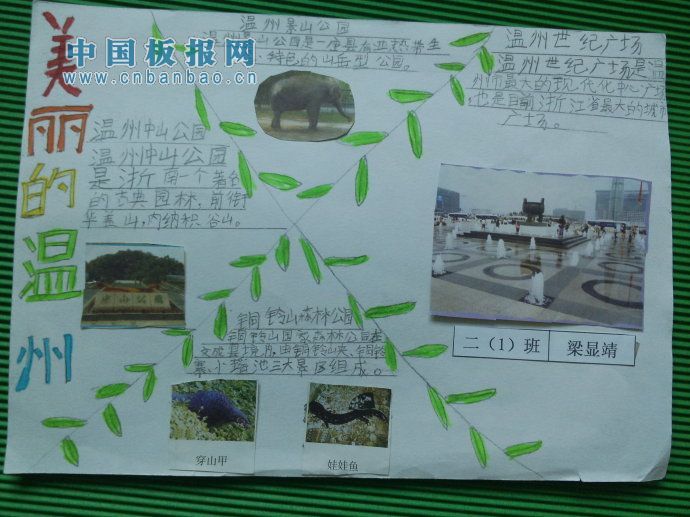 美丽的温州
中国板报网
www.cnbanbao.cn
温州景山公园
温州景山公园是一座具有亚热带
特色的山岳型公园。
温州世纪广场
温州世纪广场是温
州市最大的现代化中心广场
也是目前浙江省最大的城市
广场。
温州中山公园
温州中山公园
是浙南一个著名
的古典园林,前衔
华盖山,内纳积谷山。
中山公園
铜铃山森林公园
铜铃山国家森林公园在
文成县境内,由铜铃山峡、铜铃
寨、小瑶池三大景区组成。
二(1)班
梁显靖
穿山甲
娃娃鱼